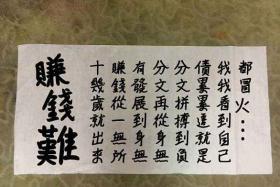 賺錢難
十幾歲就出來
賺錢從一無所
有發展到身無
分文再從身無
分文拼搏到負
債累累這就是
我我看到自己
都冒火...